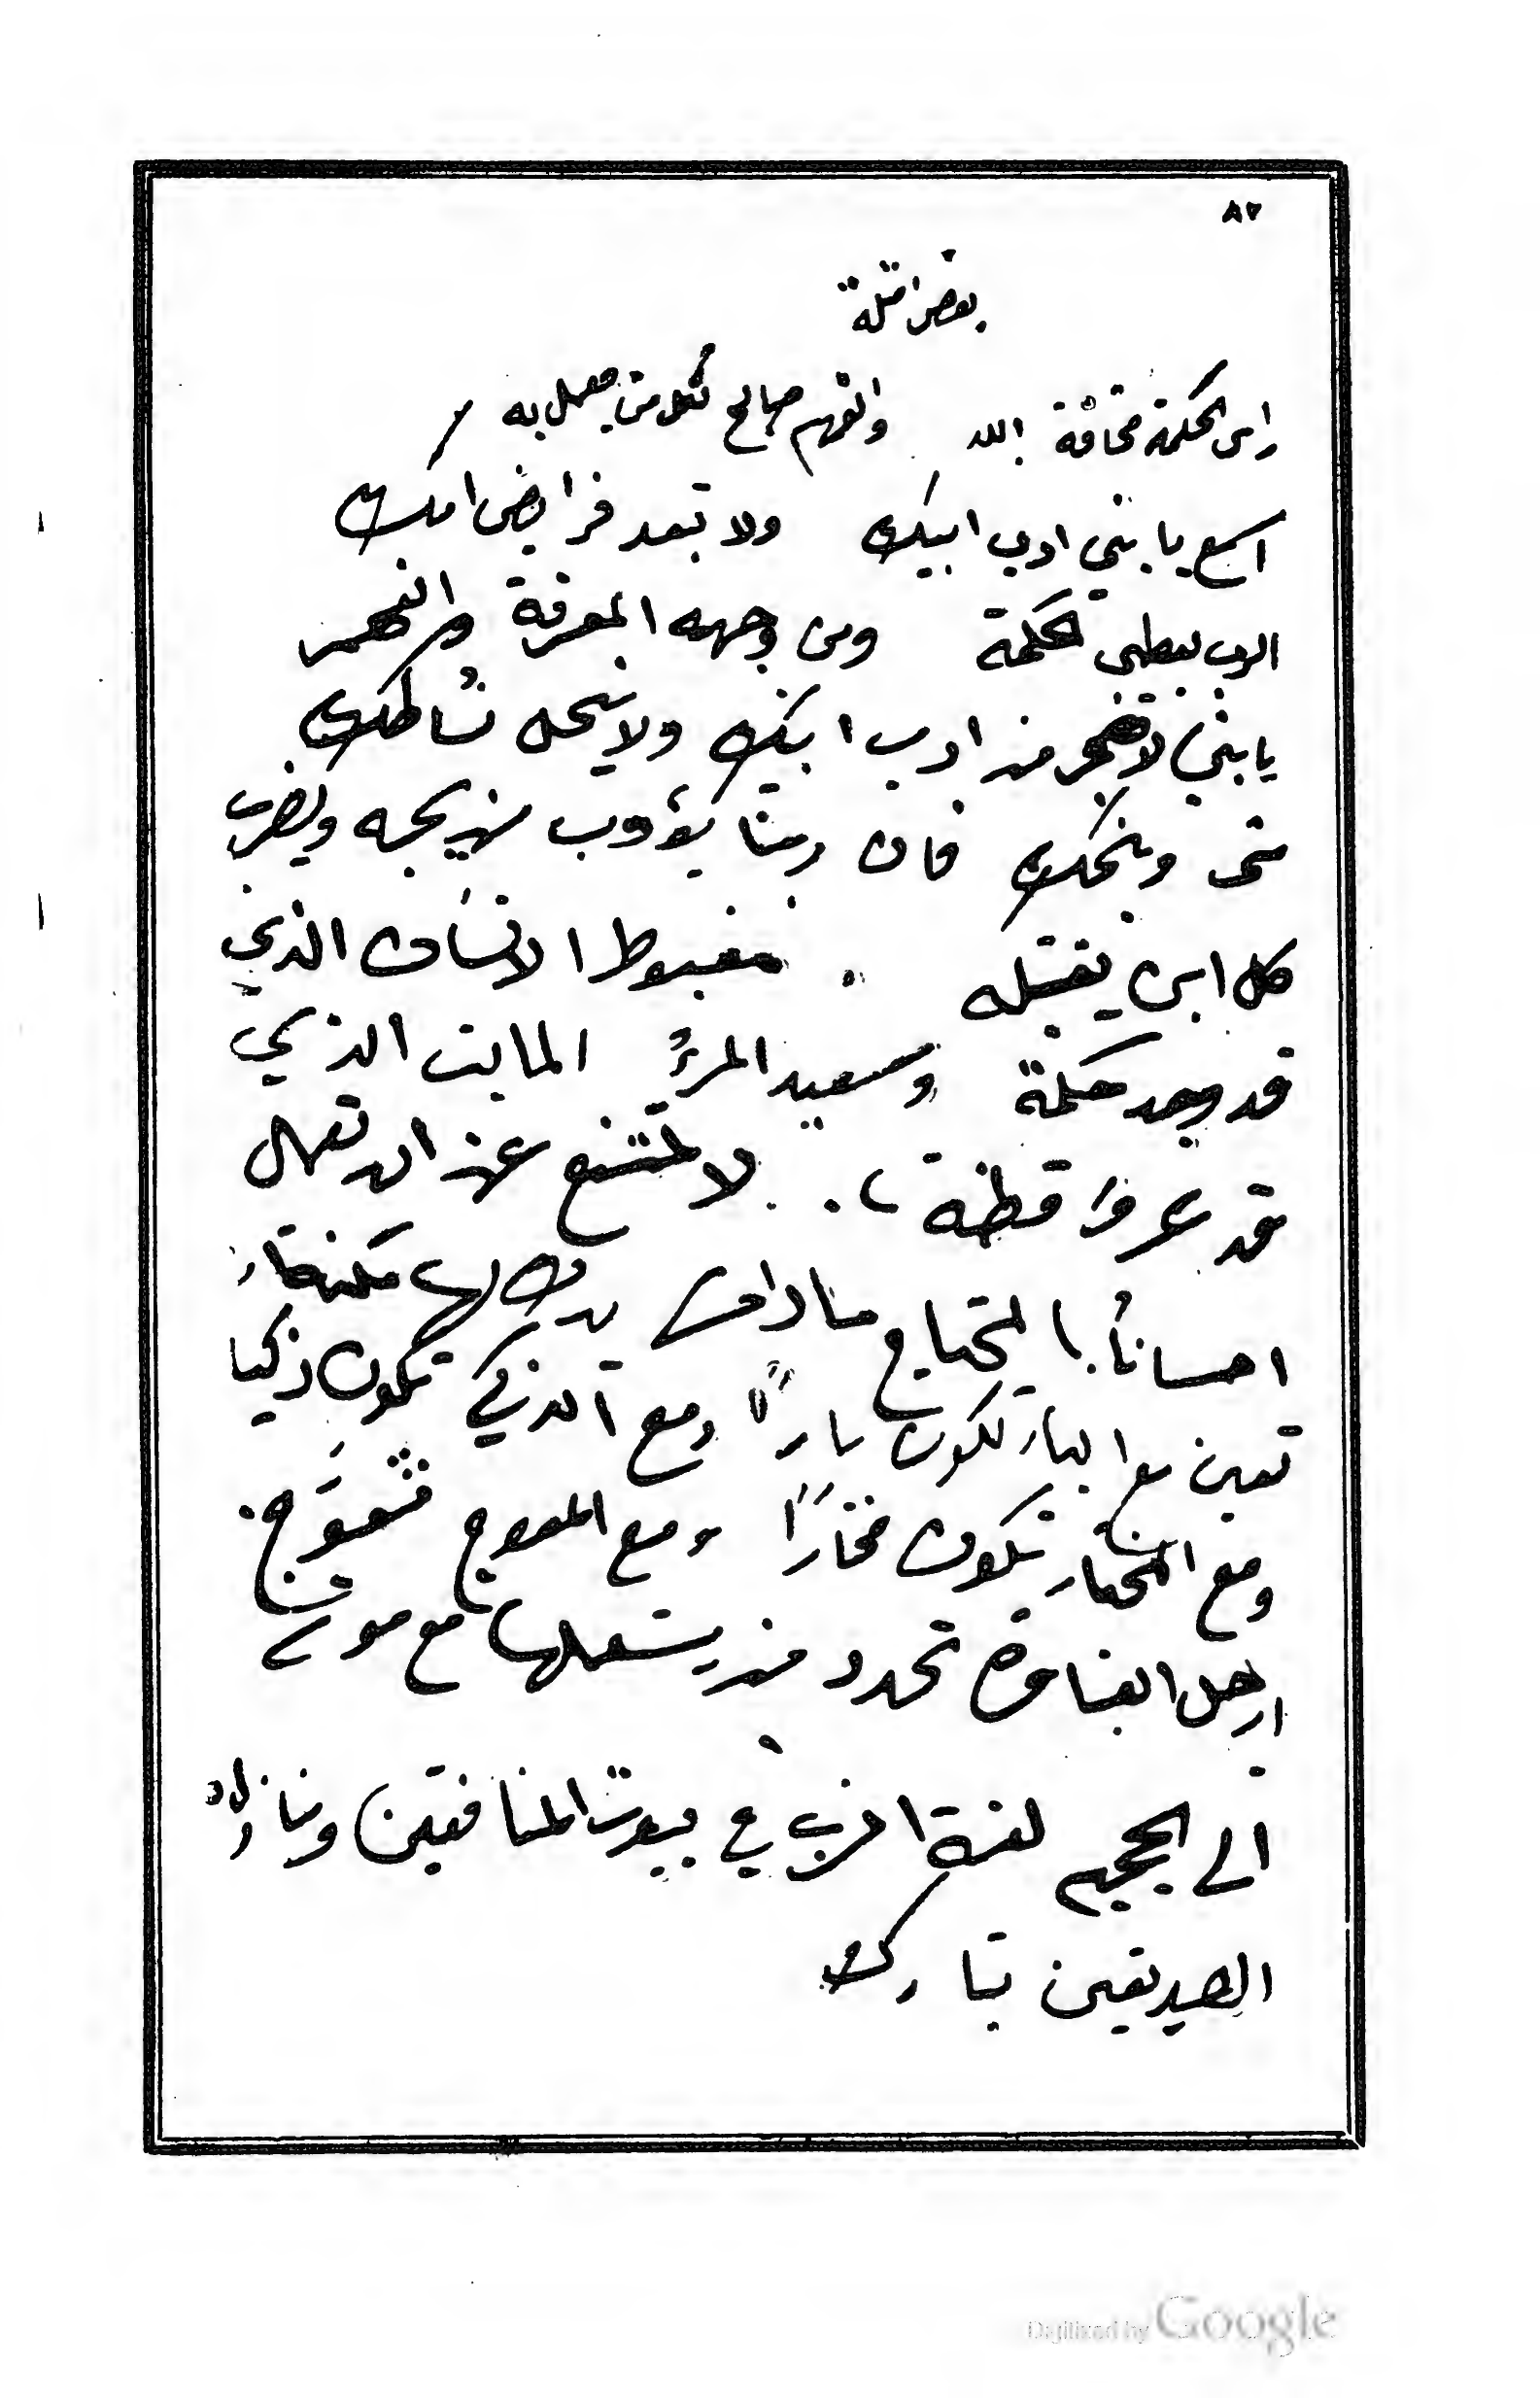 ٨٢
بعض امثلة
راس الحكمة مخافة الله والفهم صالح لكل من يعمل به
اسمع يا بني ادب ابيك ولا تبعد فرايض امك
الرب يعطي حكمة ومن وجهه المعرفة والفهم
يا بني لا تضجر من ادب ابيك ولا ينحل نشاطك
متى وبخك فان ربنا يؤدب من يحبه ويضرب
كل ابن يقبله مغبوط الانسان الذي
قد وجد حكمة وسعيد المرءُ المايت الذي
قد عرف فطنة لا تمتنع عن ان تعمل
احساناً بالمحتاج ما دامت يدك لها مكنة
تعين مع البار تكون باراً ومع الذكي تكون ذكيا
ومع المختار تكون مختاراً ومع المعوج فتعوَج
ارجل الغباوة تحدر من يستعملها مع موت
الى الجحيم لعنة الرب في بيوت المنافقين ومنازل
الصديقين تبارك
Digitized by Google